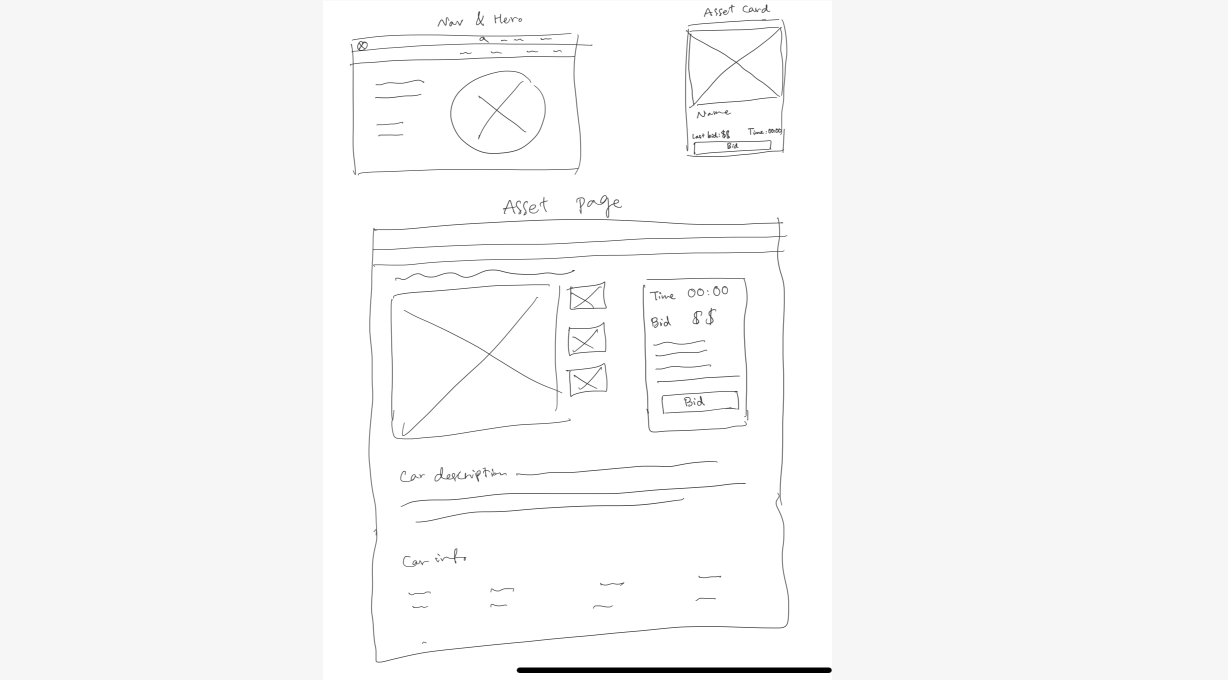 Nav & Hero
Asset Card
Name
Last bid: $$ Time: 00:00
Bid
Asset page
Time 00:00
Bid $$
Bid
Car description
Car info